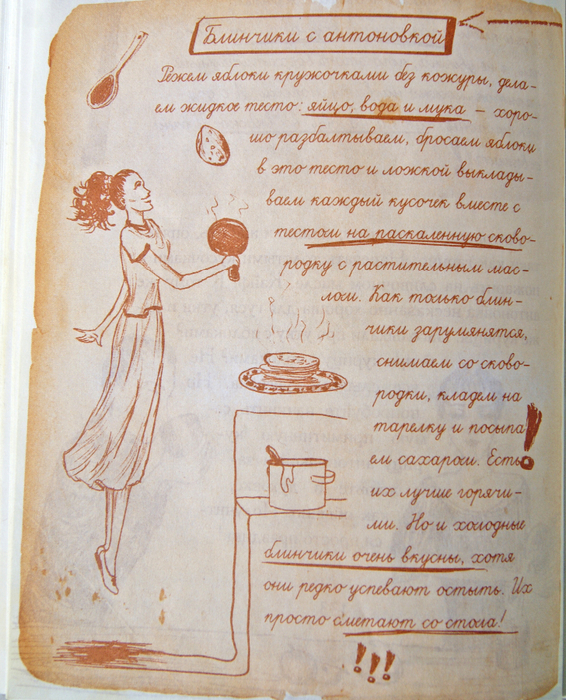 Блинчики с антоновкой
Режем яблоки кружочками без кожуры, дела-
ем жидкое тесто: яйцо, вода и мука – хоро-
шо разбалтываем, бросаем яблоки
в это тесто и ложкой выклады-
ваем каждый кусочек вместе с
тестом на раскаленную сково-
родку с растительным мас-
лом. Как только блин-
чики зарумянятся,
снимаем со сково-
родки, кладем на
тарелку и посыпа
ем сахаром. Есть
их лучше горячи-
ми. Но и холодные
блинчики очень вкусны, хотя
они редко успевают остыть. Их
просто сметают со стола!
!!!